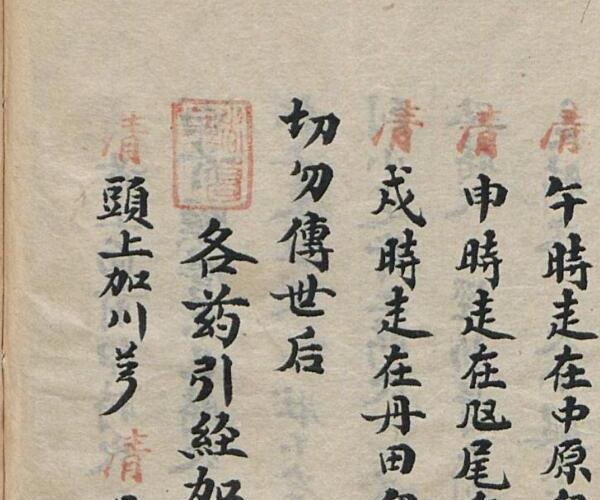 清午時走在中原
清申時走在凨尾
清戌時走在丹田
切勿傳世后
各药引經加
清頭上加川芎清